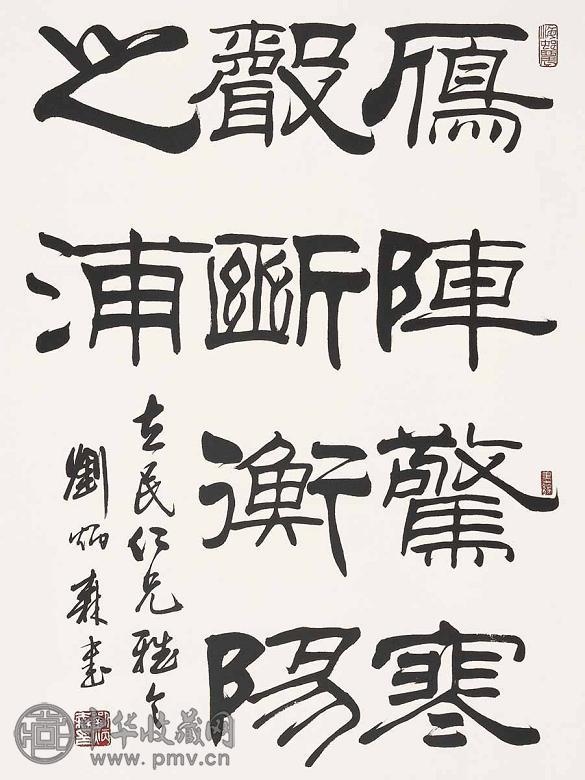 鴈陣驚寒
聲斷衡陽
之浦
立民仁兄雅令
劉炳森書
中华收藏网
www.pmv.cn